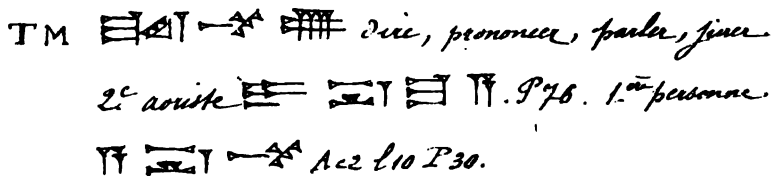 TM 𒋫 𒈬 𒌑 dire, prononcer, parler, jurer.
2.e aoriste . P 76 . 1.ère personne.
𒀀 𒈬 A c2 l 10 P 30.